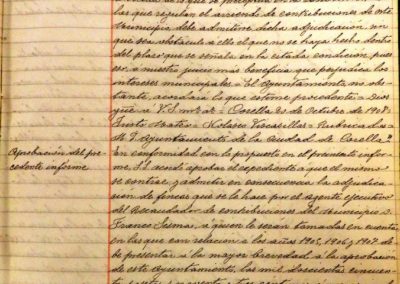 las que regulan el arriendo de contribuciones de este
Municipio, debe admitirse dicha adjudicación sin
que sea obstáculo a ello el que no se haya hecho dentro
del plazo que se señala en la citada condición, pues
ser, á nuestro juicio más beneficia que perjudica los
intereses municipales = El Ayuntamiento no obs-
tante, acordará lo que estime procedente = Dios
gue a V.S. ms as = Corella 20 de Octubre de 1908 =
Justo Mateo = Nolasco Viscasillas = Rubricada =
M. I. Ayuntamiento de la Ciudad de Corella."
Aprobación del pre-
cedente informe
En conformidad con lo propuesto en el preinserto infor-
me S.S. acordó aprobar el expediente a que el mismo
se contrae y admitir en consecuencia la adjudica-
ción de fincas que se le hace por el agente ejecutivo
del Recaudador de contribuciones del Municipio D.
Franco Sesma, a quien le serán tomadas en cuenta
en las que con relación a los años 1905, 1906 y 1907 de-
be presentar a la mayor brevedad a la aprobación
de este Ayuntamiento, las mil doscientas cincuen-